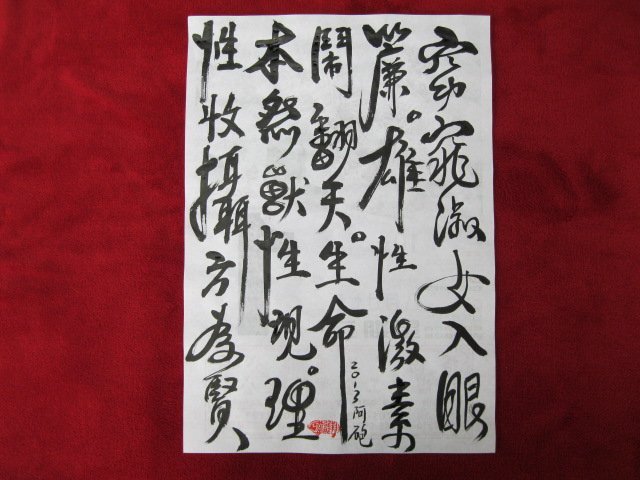 窈窕淑女入眼
簾。雄性激素
鬧翻天。生命
本然獸性現。理
性收攝方為賢
2013阿砲